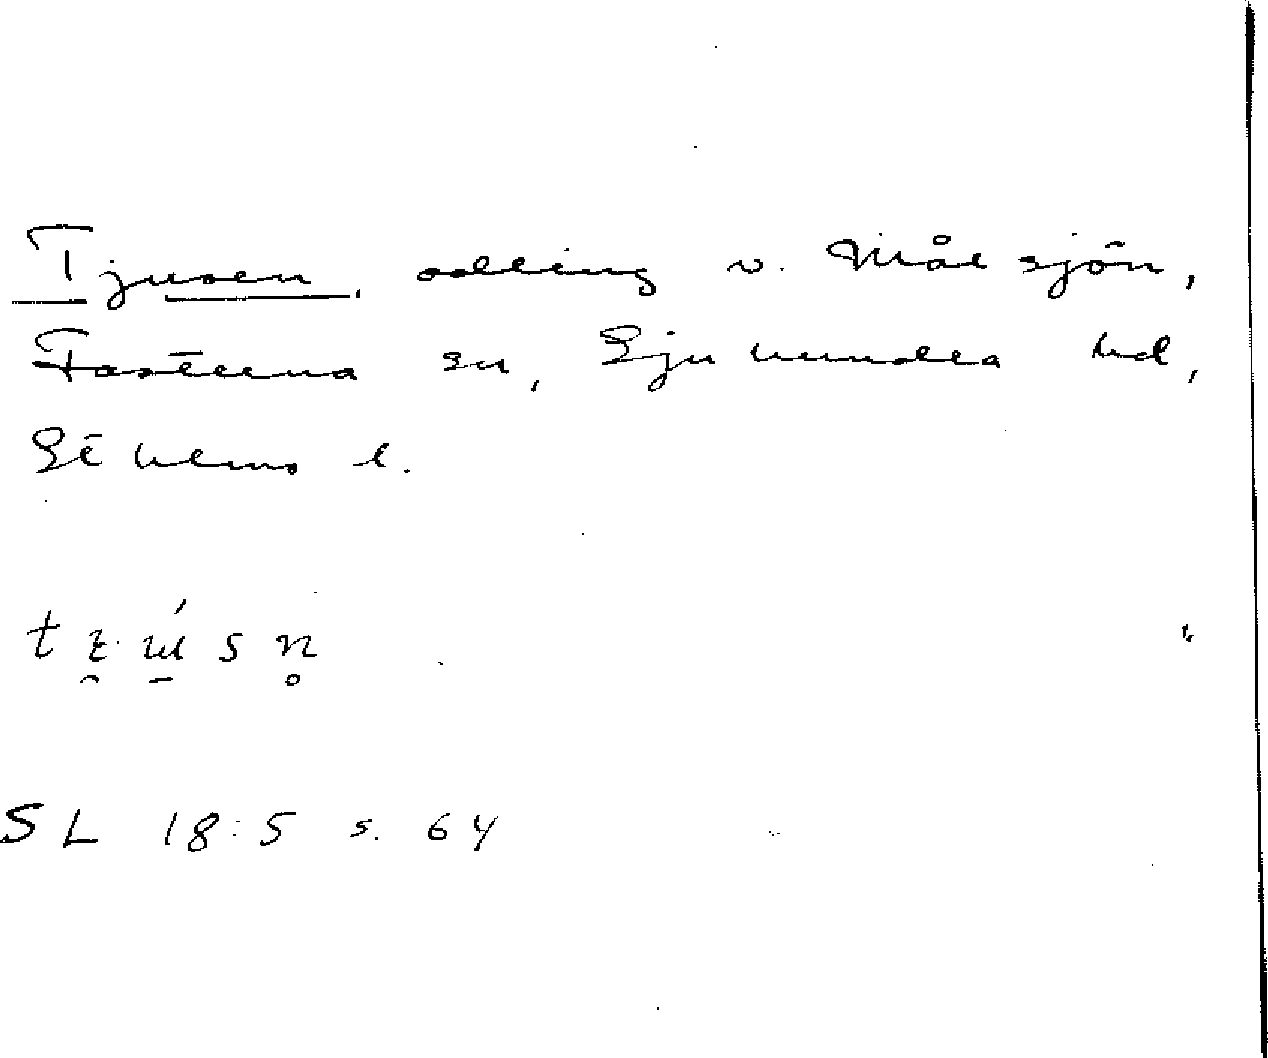 Tjusen, odling v. Målsjön,
Fasterna sn, Sjuhundra hd,
Sthlms l.
SL 18:5 s. 64